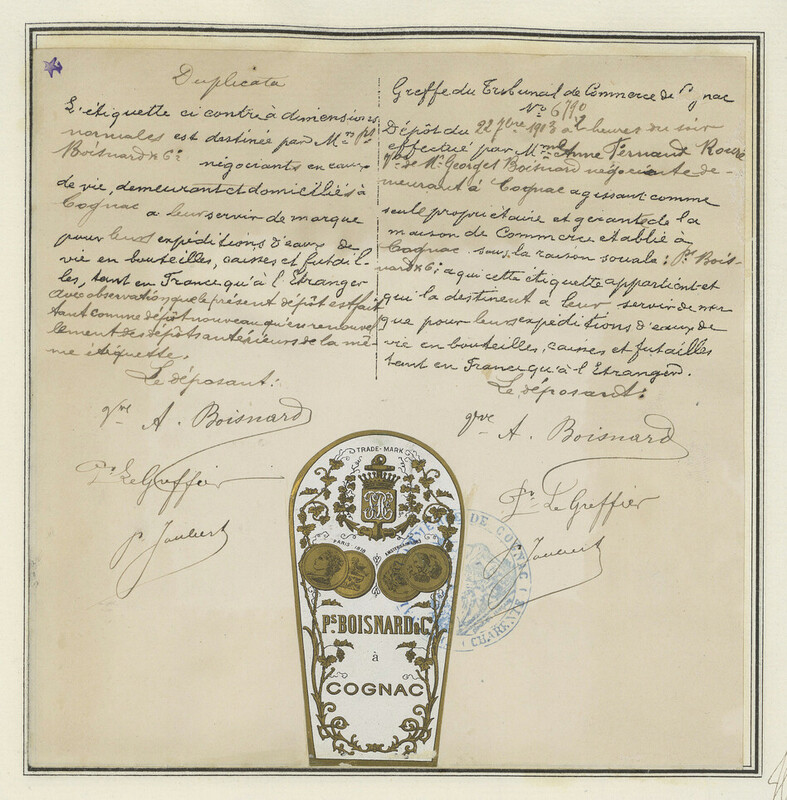 Duplicata
L'étiquette ci contre à dimensions
normales est destinée par Mrs Prs
Boisnard & Cie négociants en eaux
de vie, demeurant et domiciliés à
Cognac à leur servir de marque
pour leurs expéditions d'eaux de
vie en bouteilles, caisses et futail-
les, tant en France qu'à l'Etranger
avec observation que le présent dépôt est fait
tant comme dépôt nouveau qu'en renouvel
lement des dépôts antérieurs de la mê-
me étiquette.
Le déposant:
vve A. Boisnard
Le Greffier
P. Joubert
Greffe du Tribunal de Commerce de Cognac
No 6790
Dépôt du 22 7bre 1903 à 2 heures du soir
effectué par Mme Anne Fernand
Vve de Mr Georges Boisnard négociante de-
meurant à Cognac agissant comme
seule propriétaire et gérante de la
maison de Commerce établie à
Cognac sous la raison sociale: Prs Bois-
nard & Cie à qui cette étiquette appartient et
qui la destinent à leur servir de mar
que pour leurs expéditions d'eaux de
vie en bouteilles, caisses et futailles
tant en France qu'à l'Etranger.
Le déposant:
vve A. Boisnard
Le Greffier
Joubert
TRADE-MARK
PARIS 1878
AMSTERDAM
Ps BOISNARD & C.
à
COGNAC
DE COGNAC